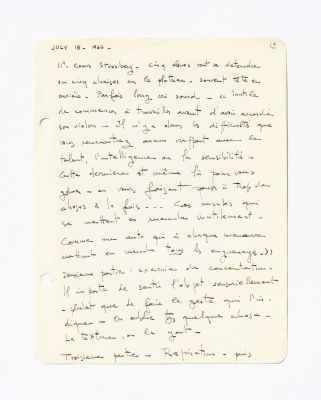 JULY 18 - 1966 -
11e Cours Strasberg - Cinq élèves vont se détendre
sur cinq chaises sur le plateau - souvent tête en
arrière - Parfois long cri sourd - "Inutile
de commencer à travailler avant d'avoir accordé
son violon - Il n'y a dans les difficultés que
vous rencontrez aucun rapport avec le
talent, l'intelligence ou la sensibilité -
Cette dernière est même là pour vous
gêner - en vous faisant penser à trop de
choses à la fois - . . . Ces muscles qui
se mettent en marche inutilement -
Comme une auto qui à chaque manoeuvre
mettrait en marche tous les engrenages - "
Deuxième partie : exercice de concentration -
Il importe de sentir l'objet sensoriellement
- plutôt que de faire le geste qui l'in-
dique - On oublie quelque chose -
La texture, ou le goût -
Troisième partie - Respiration - puis